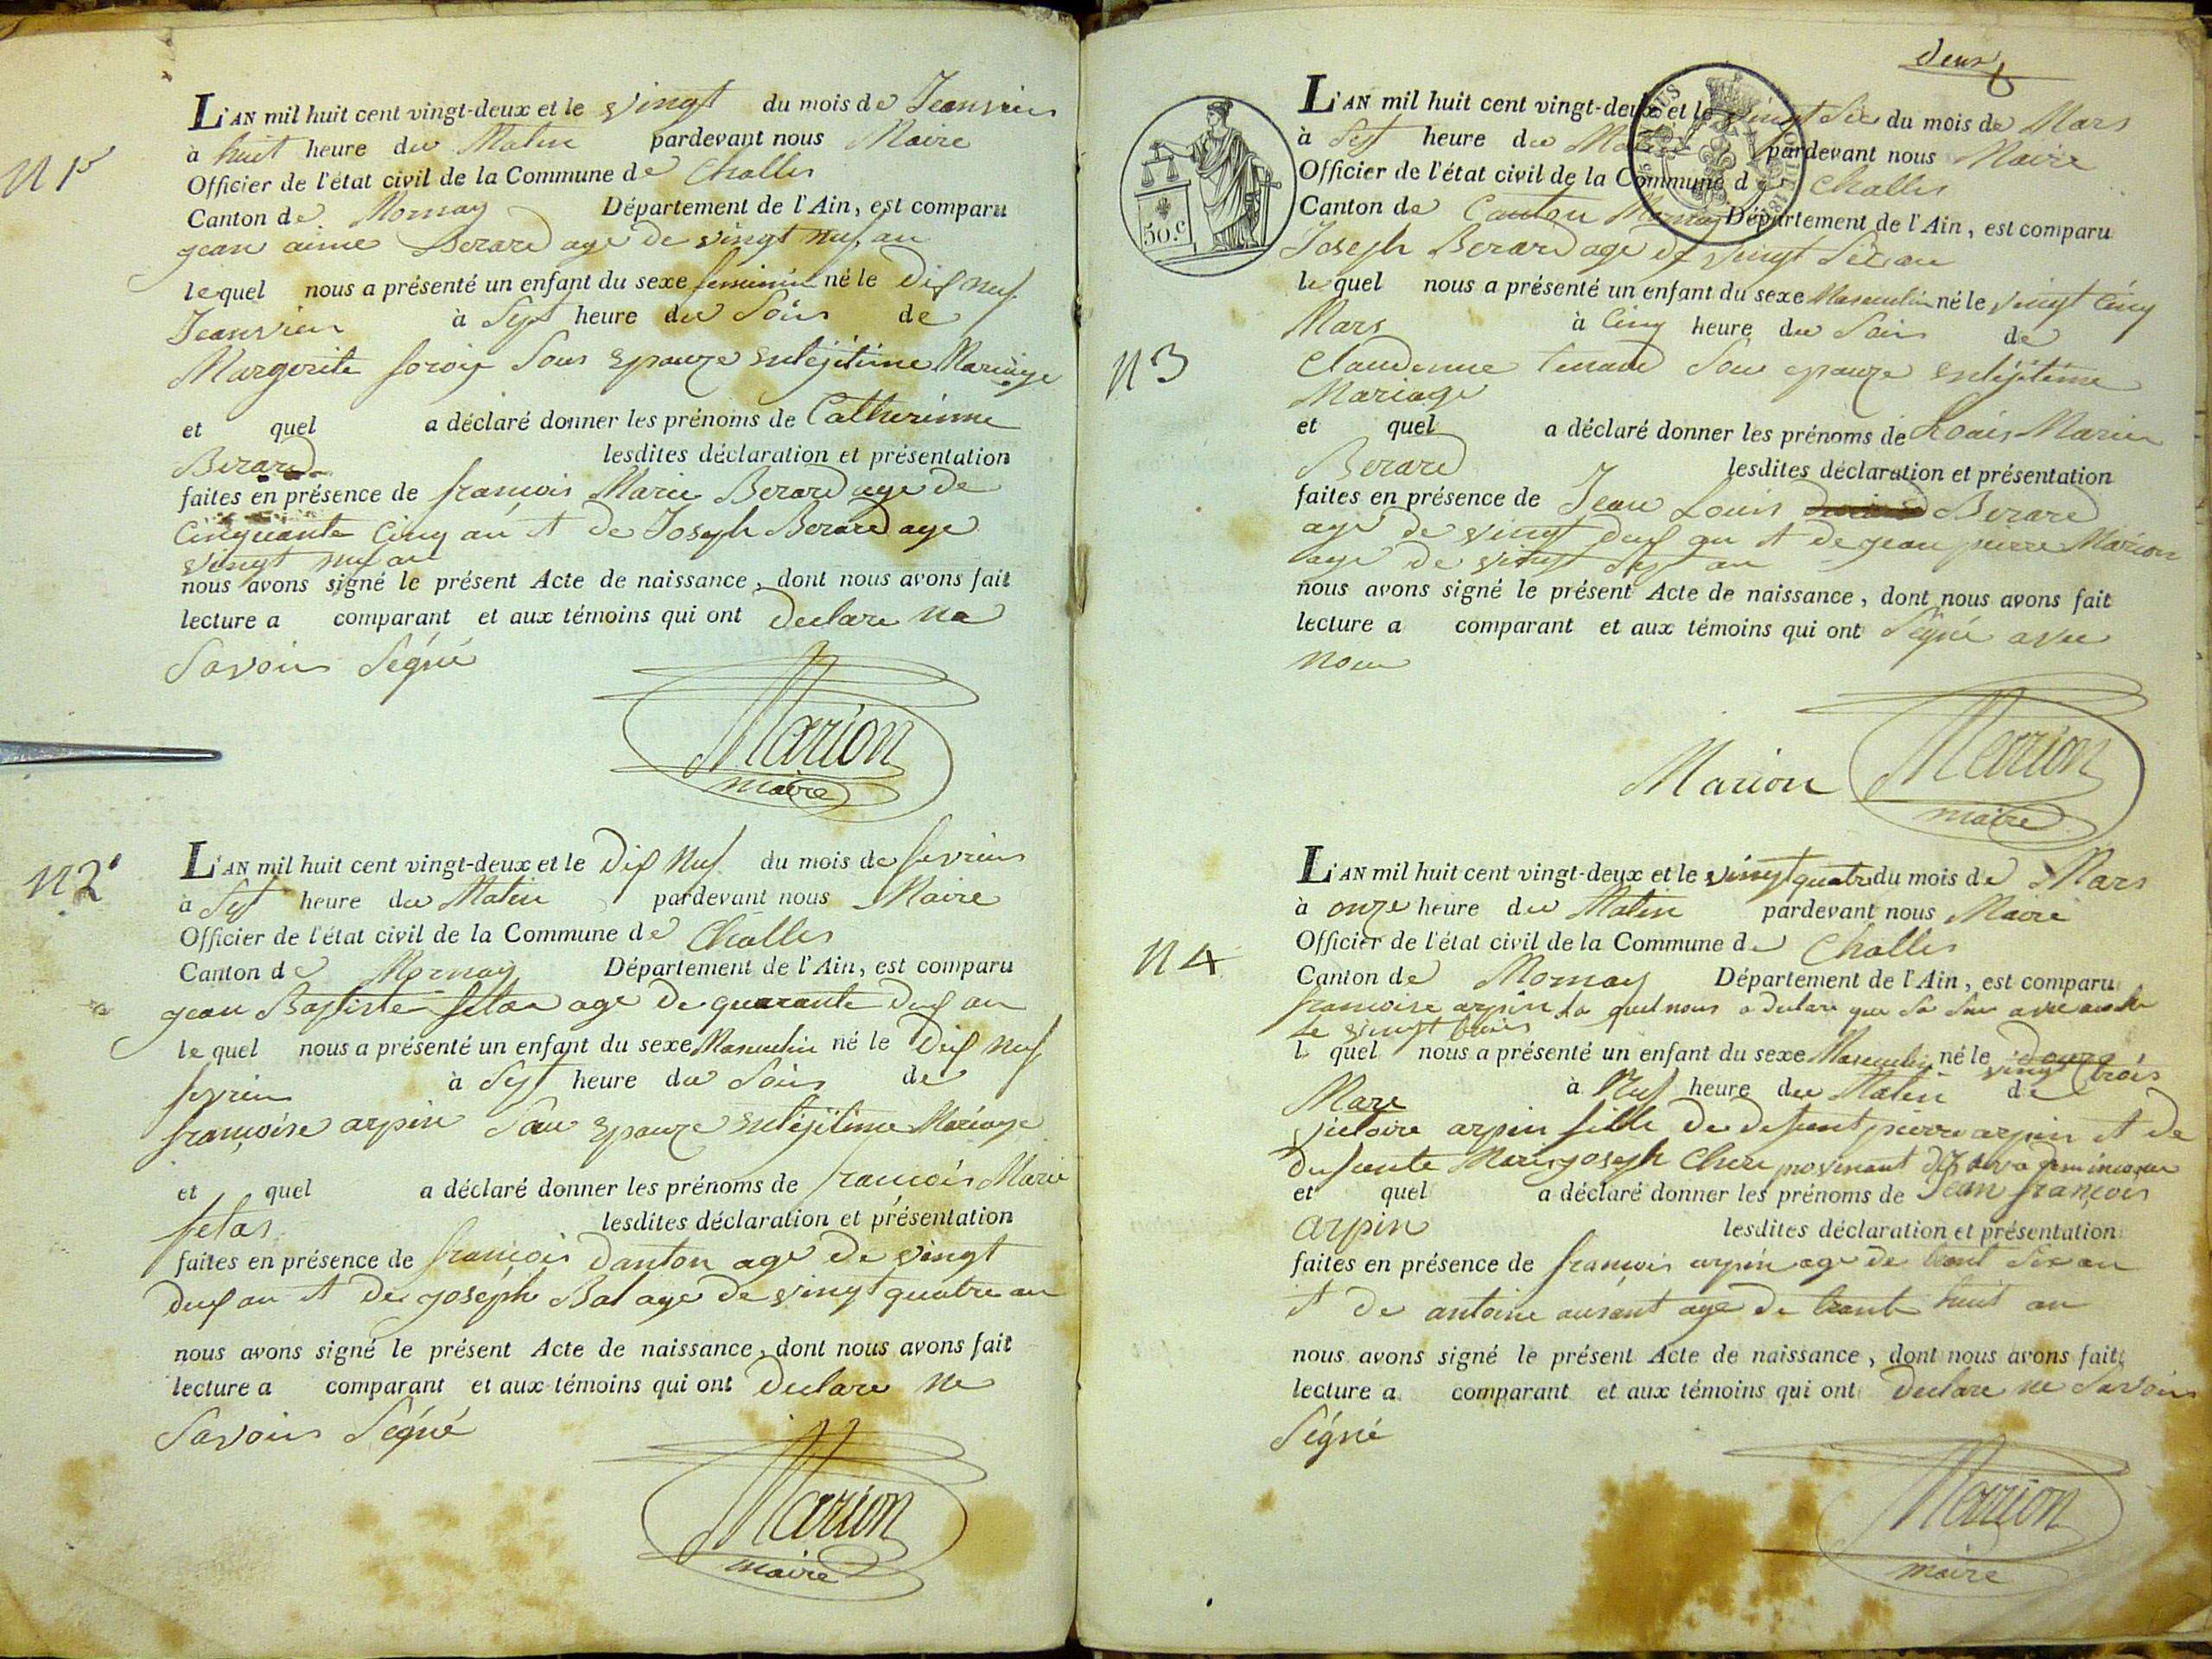 N 1r
L'AN mil huit cent vingt-deux et le vingt du mois de Jeanvier
à huit heure du Matin pardevant nous Maire
Officier de l'état civil de la Commune de Challes
Canton de Mornay Département de l'Ain, est comparu
jean aimé Berard age de vingt nuf an
le quel nous a présenté un enfant du sexe feminin né le Dif nuf
Jeanvier à Sept heure du Soir de
Margerite Sous Epouze Enlégitime Mariage
et quel a déclaré donner les prénoms de Catherinne
Berard lesdites déclaration et présentation
faites en présence de francois Marie Berard age de
Cinquante Cinq an et de Joseph Berard age
vingt nuf an
nous avons signé le présent Acte de naissance, dont nous avons fait
lecture a comparant et aux témoins qui ont Declare ne
Savoir Ségné
Marion
maire
N 2
L'AN mil huit cent vingt-deux et le Dif Nuf du mois de fevrier
à Sept heure du Matin pardevant nous Maire
Officier de l'état civil de la Commune de Challes
Canton de Mornay Département de l'Ain, est comparu
jean Baptiste fetas age de quarante Deuf an
le quel nous a présenté un enfant du sexe Masculin né le Dif nuf
fevrier à Sept heure du Soir de
françoise arpin Sou Epouze Enlégitime Mariage
et quel a déclaré donner les prénoms de francois Marie
fetas lesdites déclaration et présentation
faites en présence de francois Danton age de vingt
Deuf an et De joseph Bal age De vingt quatre an
nous avons signé le présent Acte de naissance, dont nous avons fait
lecture a comparant et aux témoins qui ont Declare ne
Savoir Ségné
Marion
maire
deux
50.c
L'AN mil huit cent vingt-deux et le vingt Six du mois de Mars
à Sept heure du Matin pardevant nous Maire
Officier de l'état civil de la Commune de Challes
Canton de Canton Mornay Département de l'Ain, est comparu
Joseph Berard age de vingt Six an
le quel nous a présenté un enfant du sexe Masculin né le vingt Cinq
Mars à Cinq heure du Soir de
N 3
Claudinne Sou epouze enlégitime
Mariage
et quel a déclaré donner les prénoms de Louis Marie
Berard lesdites déclaration et présentation
faites en présence de Jean Louis Berard
age de vingt Deuf an et De jean pierre Marion
age De vingt Sept an
nous avons signé le présent Acte de naissance, dont nous avons fait
lecture a comparant et aux témoins qui ont Ségné avec
nous
Marion Marion
maire
L'AN mil huit cent vingt-deux et le vingt quatre du mois de Mars
à onze heure du Matin pardevant nous Maire
Officier de l'état civil de la Commune de Challes
N 4
Canton de Mornay Département de l'Ain, est comparu
francoise arpin La quel nous a Declare que Sa Seur
Le vingt trois
l quel nous a présenté un enfant du sexe Masculin né le vingt trois
Mars à Nuf heure du Matin de
victoire arpin fille De Defunt pierre arpin et De
Defunte Marie joseph Chere provenant
et quel a déclaré donner les prénoms de Jean françois
arpin lesdites déclaration et présentation
faites en présence de francois arpin age de trant Six an
et De antoine age De trante huit an
nous avons signé le présent Acte de naissance, dont nous avons fait
lecture a comparant et aux témoins qui ont Declare ne Savoir
Ségné
Marion
maire